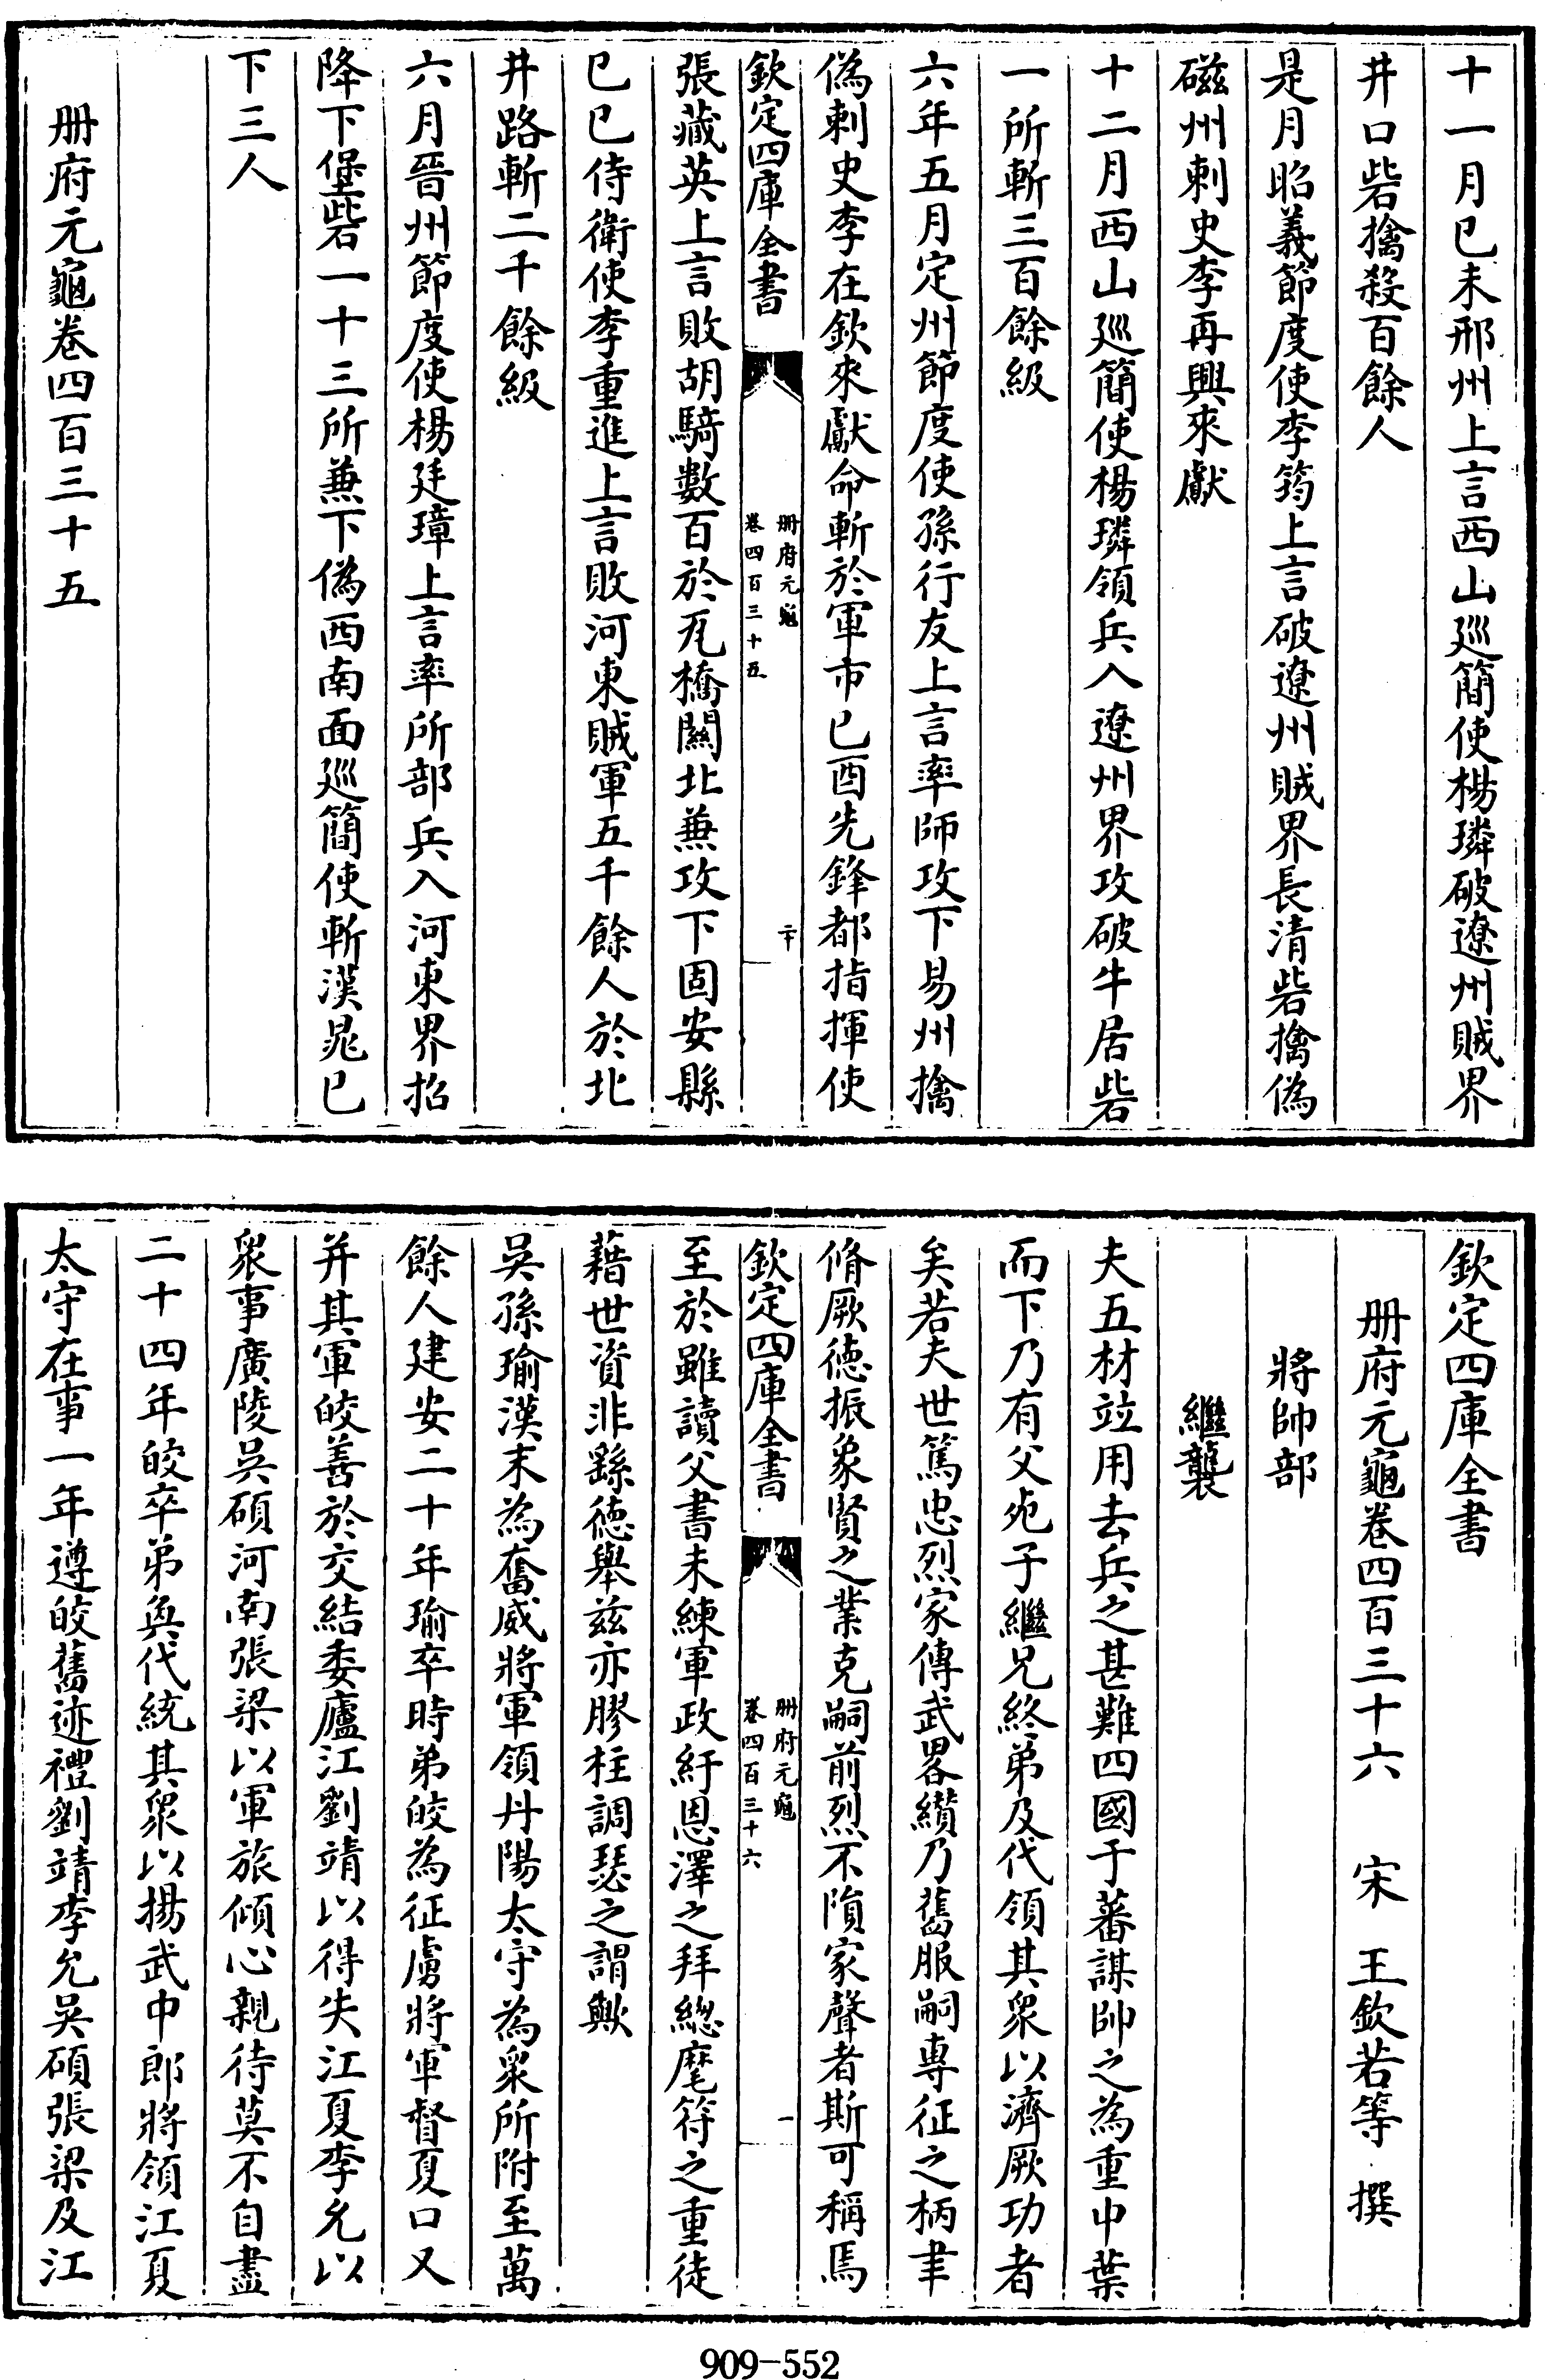 十一月已未邢州上言西山廵簡使楊璘破遼州賊界
井口砦擒殺百餘人
是月昭義節度使李筠上言破遼州賊界長清砦擒偽
磁州刺史李再興來獻
十二月西山廵簡使楊璘領兵入遼州界攻破牛居砦
一所斬三百餘級
六年五月定州節度使孫行友上言率師攻下易州擒
偽刺史李在欽來獻命斬於軍市已酉先鋒都指揮使
欽定四庫全書
册府元龜
卷四百三十五
二十
張藏英上言敗胡騎數百於瓦橋關北兼攻下固安縣
已已侍衛使李重進上言敗河東賊軍五千餘人於北
井路斬二千餘級
六月晉州節度使楊廷璋上言率所部兵入河東界招
降下堡砦一十三所兼下偽西南面廵簡使斬漢晁已
下三人
册府元龜卷四百三十五
欽定四庫全書
册府元龜卷四百三十六 宋 王欽若等 撰
將帥部
繼襲
夫五材竝用去兵之甚難四國于蕃謀帥之為重中葉
而下乃有父死子繼兄終弟及代領其衆以濟厥功者
矣若夫世篤忠烈家傳武畧纘乃舊服嗣専征之柄聿
脩厥徳振象賢之業克嗣前烈不隕家聲者斯可稱焉
欽定四庫全書
册府元龜
卷四百三十六
一
至於雖讀父書未練軍政紆恩澤之拜總麾符之重徒
藉世資非繇徳舉兹亦膠柱調瑟之謂歟
吳孫瑜漢末為奮威將軍領丹陽太守為衆所附至萬
餘人建安二十年瑜卒時弟皎為征虜將軍督夏口又
并其軍皎善於交結委廬江劉靖以得失江夏李允以
衆事廣陵吳碩河南張梁以軍旅傾心親待莫不自盡
二十四年皎卒弟奐代統其衆以揚武中郎將領江夏
太守在事一年遵皎舊迹禮劉靖李允吳碩張梁及江
909-552